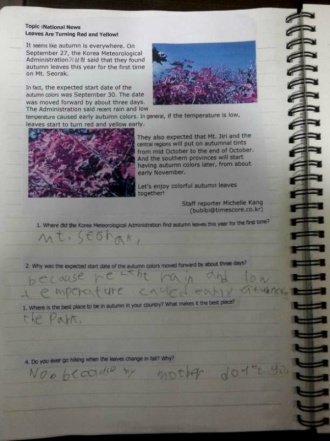 Topic :National News
Leaves Are Turning Red and Yellow!
It seems like autumn is everywhere. On
September 27, the Korea Meteorological
Administration기상청 said that they found
autumn leaves this year for the first time
on Mt. Seorak.
In fact, the expected start date of the
autumn colors was September 30. The date
was moved forward by about three days.
The Administration said recent rain and low
temperature caused early autumn colors. In general, if the temperature is low,
leaves start to turn red and yellow early.
They also expected that Mt. Jiri and the
central regions will put on autumnal tints
from mid October to the end of October.
And the southern provinces will start
having autumn colors later, from about
early November.
Let's enjoy colorful autumn leaves
together!
Staff reporter Michelle Kang
(bubibi@timescore.co.kr)
1. Where did the Korea Meteorological Administration find autumn leaves this year for the first time?
Mt. Seorak.
2. Why was the expected start date of the autumn colors moved forward by about three days?
because rain and low
temperature caused early
3. Where is the best place to be in autumn in your country? What makes it the best place?
the Park.
4. Do you ever go hiking when the leaves change in fall? Why?
No because my mother